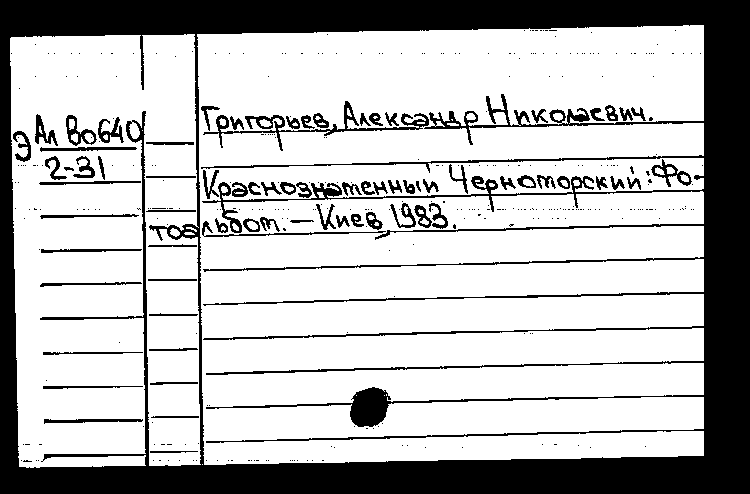 Григорьев, Александр Николаевич.
Э Ал Во640
2-31
Краснознаменный Черноморский: Фо-
тоальбом. — Киев, 1983.